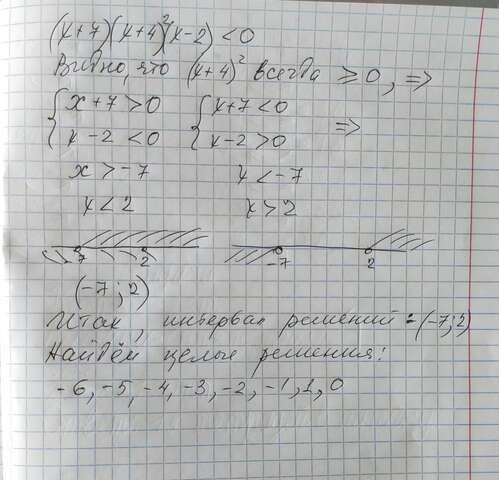 (x+7)(x+4)²(x-2) < 0
Видно, что (x+4)² всегда ≥ 0, =>
{ x+7 > 0 { x+7 < 0
{ x-2 < 0 { x-2 > 0 =>
x > -7 x < -7
x < 2 x > 2
-7 2 -7 2
(-7; 2)
Итак, интервал решений = (-7; 2)
Найдём целые решения:
-6, -5, -4, -3, -2, -1, 1, 0